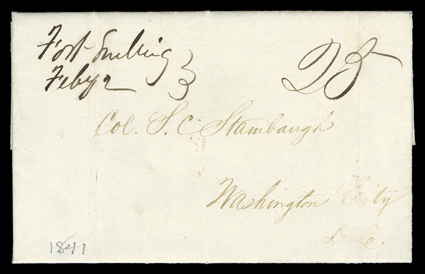 Fort Snelling
Feby 2
25
Col. S. C. Stambaugh
Washington City
D. C.
1841